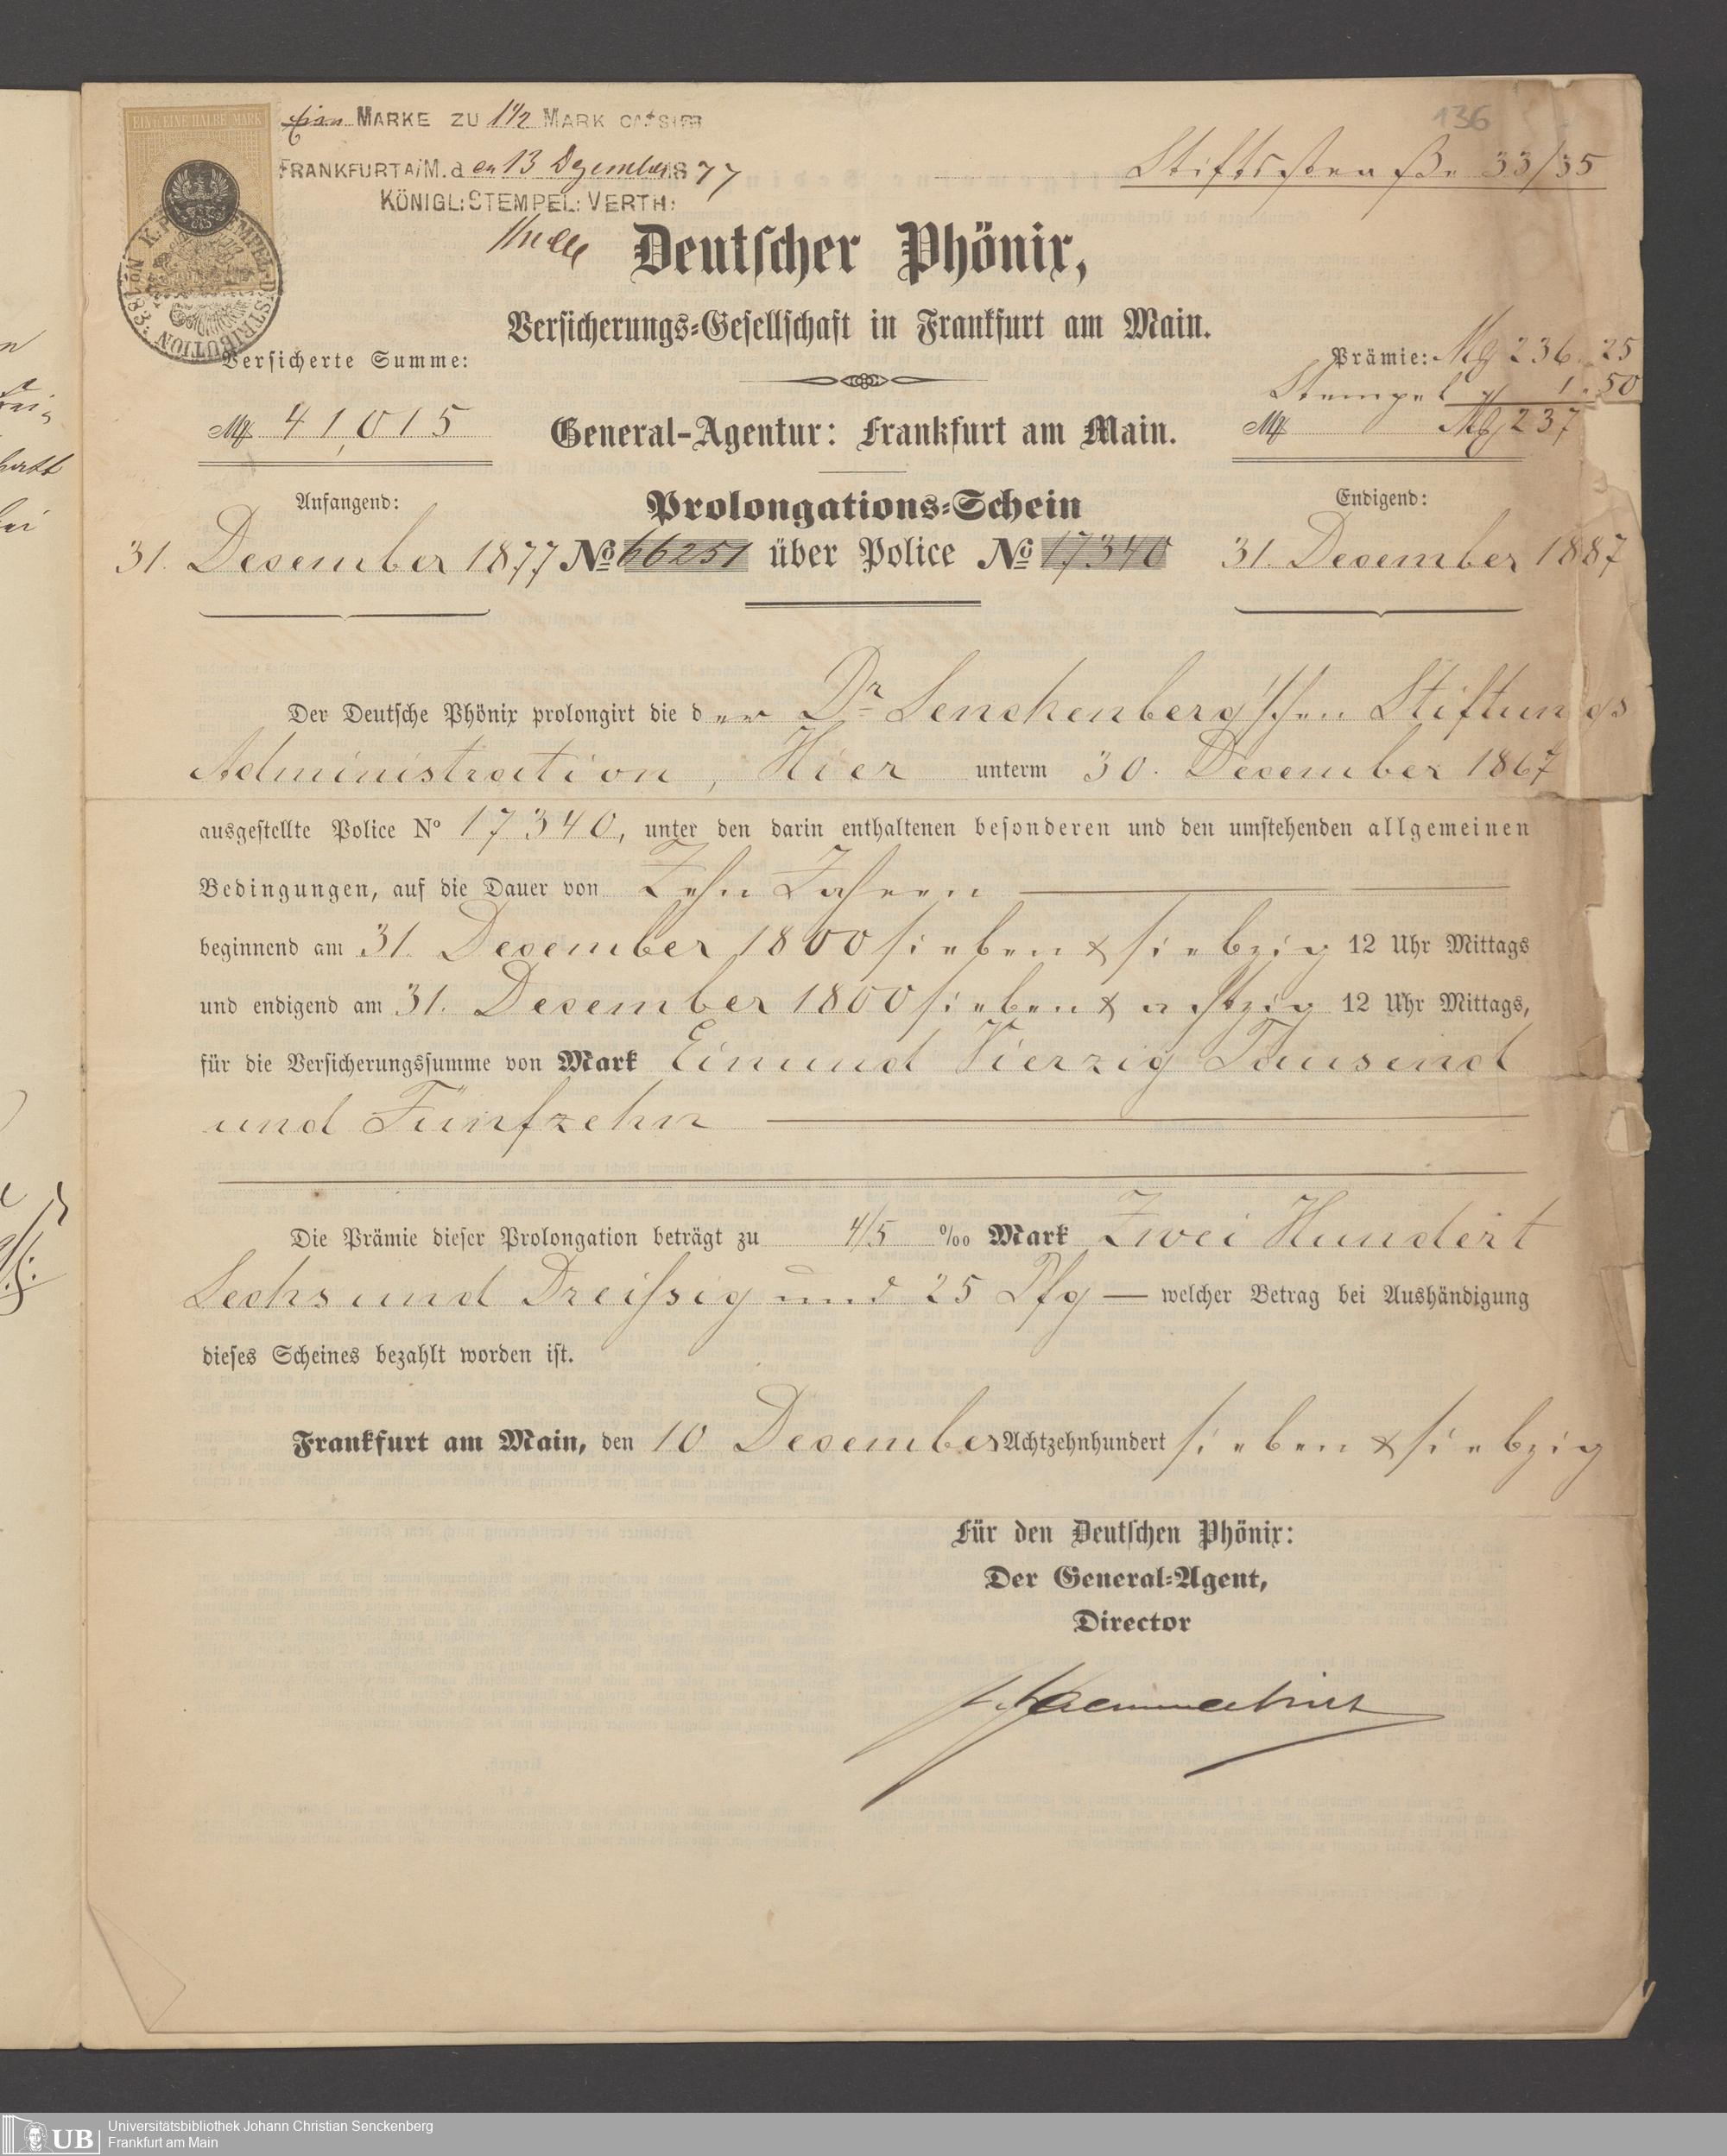 136
EINE EINE HALBE MARK
Ein MARKE ZU 1 1/2 MARK CASSIRT
FRANKFURT A/M. den 13 Dezember 1877
KÖNIGL: STEMPEL: VERTH:
Stiftsstraße 33/35
Deutscher Phönix,
Versicherungs-Gesellschaft in Frankfurt am Main.
Versicherte Summe:
Prämie: Mk 236.25
Stempel " 1.50
Mk 41,015
General-Agentur: Frankfurt am Main.
Mk Mk 237
Anfangend:
Prolongations-Schein
Endigend:
31. Dezember 1877 No 66251 über Police No 17340 31. Dezember 1887
Der Deutsche Phönix prolongirt die der Dr Senckenberg'schen Stiftungs
Administration, Hier unterm 30. Dezember 1867
ausgestellte Police No 17340, unter den darin enthaltenen besonderen und den umstehenden allgemeinen
Bedingungen, auf die Dauer von Zehn Jahren
beginnend am 31. Dezember 1800 sieben & siebzig 12 Uhr Mittags
und endigend am 31. Dezember 1800 sieben & achtzig 12 Uhr Mittags,
für die Versicherungssumme von Mark Einund Vierzig Tausend
und Fünfzehn
Die Prämie dieser Prolongation beträgt zu 4/5 ‰ Mark Zwei Hundert
Sechs und Dreissig und 25 Pfg — welcher Betrag bei Aushändigung
dieses Scheines bezahlt worden ist.
Frankfurt am Main, den 10 Dezember Achtzehnhundert sieben & siebzig
Für den Deutschen Phönix:
Der General-Agent,
Director
UB
Universitätsbibliothek Johann Christian Senckenberg
Frankfurt am Main